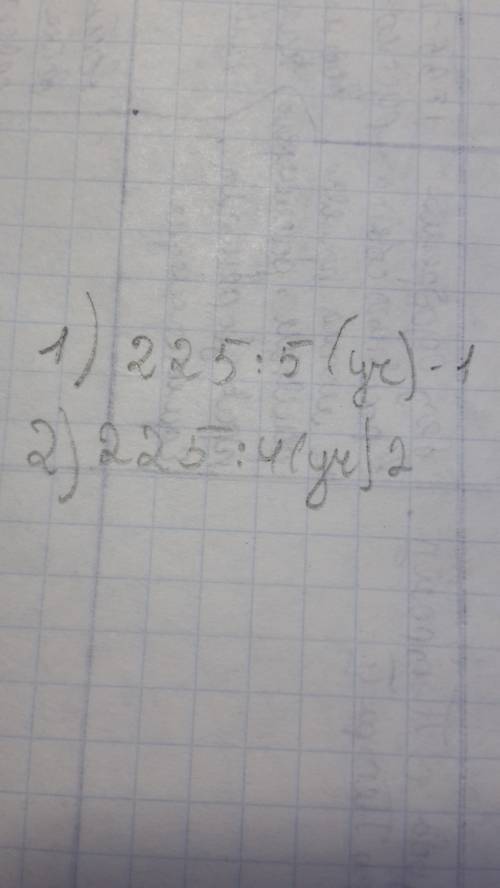 1) 225:5 (уч) - 1
2) 225:4 (уч) 2